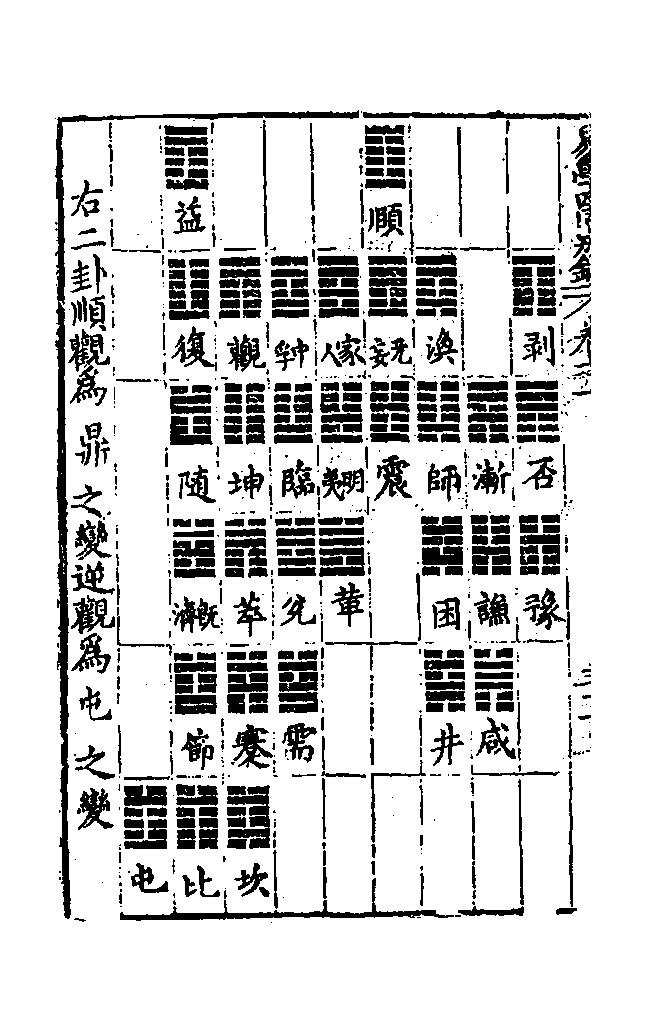 頤 益
剥 渙 无妄 家人 中孚 觀 復
否 漸 師 震 明夷 臨 坤 随
豫 謙 困 革 兊 萃 既濟
咸 井 需 蹇 節
坎 比 屯
右二卦順觀爲鼎之變逆觀爲屯之變